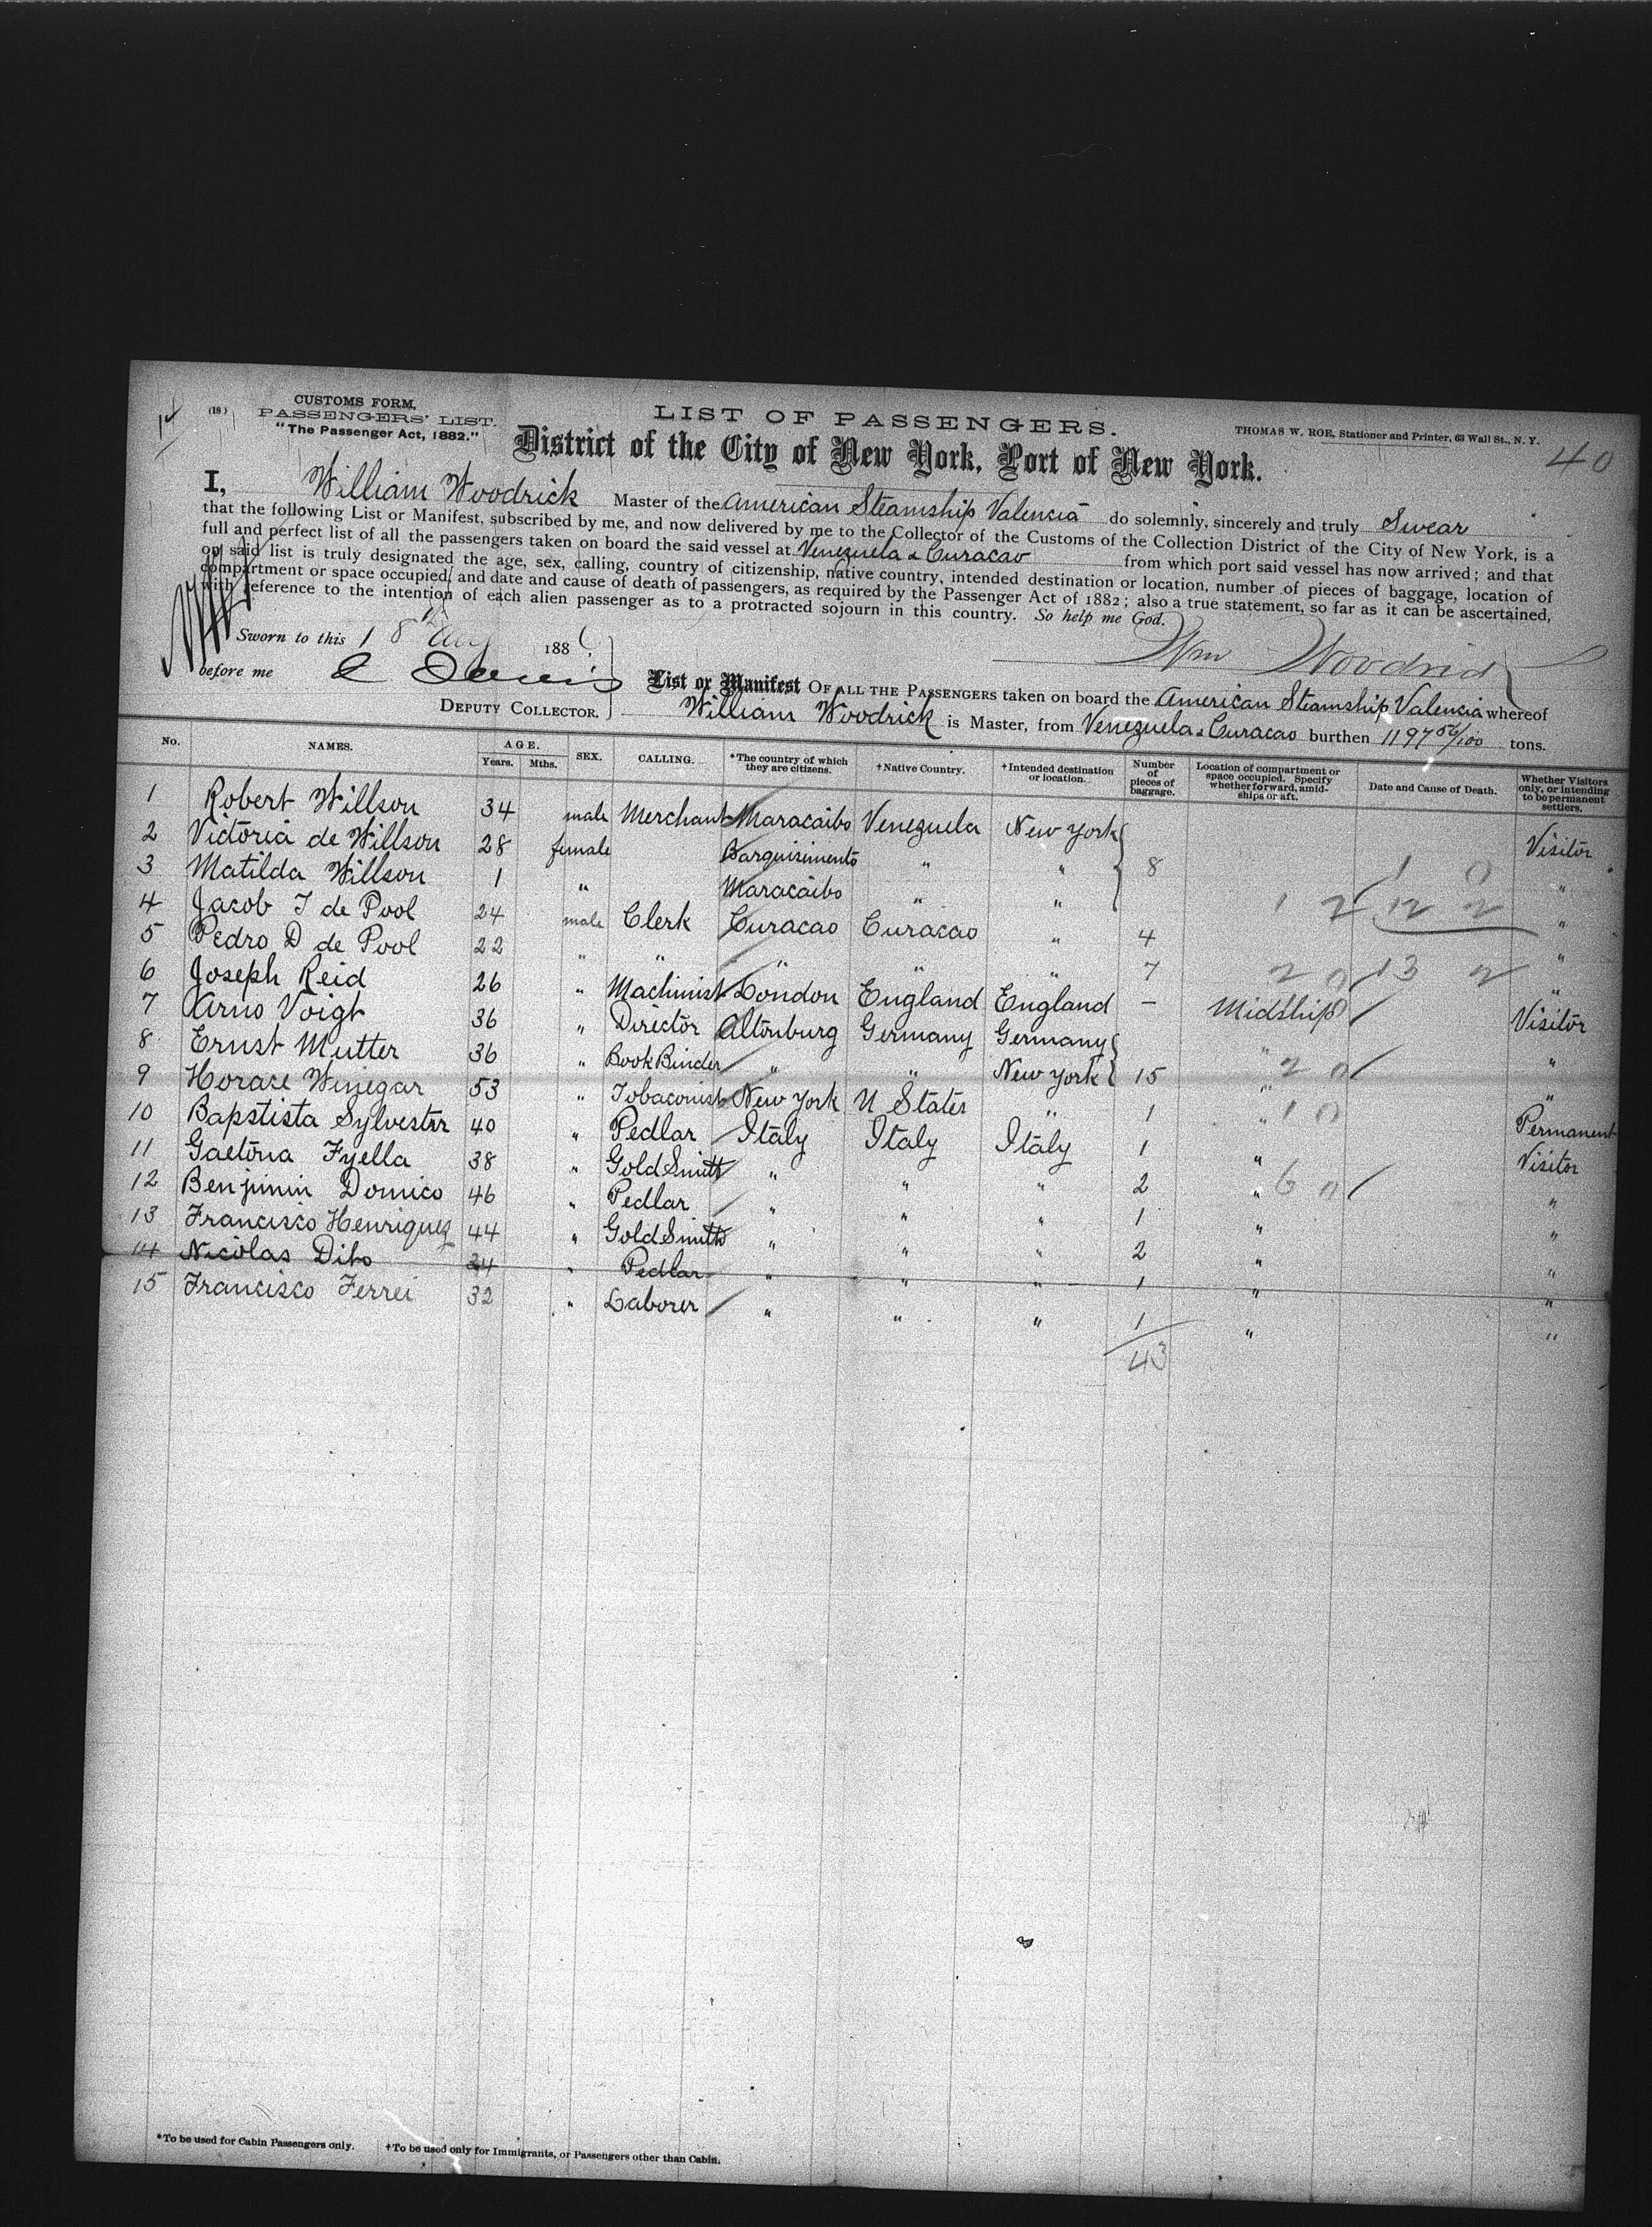 (18)
CUSTOMS FORM,
PASSENGERS' LIST.
"The Passenger Act, 1882."
LIST OF PASSENGERS.
THOMAS W. ROE, Stationer and Printer, 63 Wall St., N. Y.
40
District of the City of New York, Port of New York.
I, William Woodrick Master of the American Steamship Valencia do solemnly, sincerely and truly Swear
that the following List or Manifest, subscribed by me, and now delivered by me to the Collector of the Customs of the Collection District of the City of New York, is a
full and perfect list of all the passengers taken on board the said vessel at Venezuela & Curacao from which port said vessel has now arrived; and that
on said list is truly designated the age, sex, calling, country of citizenship, native country, intended destination or location, number of pieces of baggage, location of
compartment or space occupied, and date and cause of death of passengers, as required by the Passenger Act of 1882; also a true statement, so far as it can be ascertained,
with reference to the intention of each alien passenger as to a protracted sojourn in this country. So help me God.
Sworn to this 18th Aug 188
Wm Woodrick
before me
DEPUTY COLLECTOR.
List or Manifest OF ALL THE PASSENGERS taken on board the American Steamship Valencia whereof
William Woodrick is Master, from Venezuela & Curacao burthen 1197 56/100 tons.
No. NAMES. AGE. Years. Mths. SEX. CALLING. *The country of which they are citizens. †Native Country. †Intended destination or location. Number of pieces of baggage. Location of compartment or space occupied. Specify whether forward, amidships or aft. Date and Cause of Death. Whether Visitors only, or intending to be permanent settlers.
1 Robert Willson 34 male Merchant Maracaibo Venezuela New York Visitor
2 Victoria de Willson 28 female Barquisimento " " 8 1 0 "
3 Matilda Willson 1 " Maracaibo " " 1 2 12 2 "
4 Jacob I de Pool 24 male Clerk Curacao Curacao " 4 "
5 Pedro D de Pool 22 " " " " " 7 2 0 13 2 "
6 Joseph Reid 26 " Machinist London England England – Midship Visitor
7 Arno Voigt 36 " Director Altonburg Germany Germany " 2 0 "
8 Ernst Mutter 36 " Book Binder " " New York 15 " "
9 Horace Winegar 53 " Tobaconist New York U States " 1 " 1 0 Permanent
10 Bapstista Sylvester 40 " Pedlar Italy Italy Italy 1 " Visitor
11 Gaetona Fyella 38 " Gold Smith " " " 2 " 6 0 "
12 Benjimin Domico 46 " Pedlar " " " 1 " "
13 Francisco Henriquez 44 " Gold Smith " " " 2 " "
14 Nicolas Dito 24 " Pedlar " " " 1 " "
15 Francisco Ferrei 32 " Laborer " " " 1 " "
43
*To be used for Cabin Passengers only. †To be used only for Immigrants, or Passengers other than Cabin.